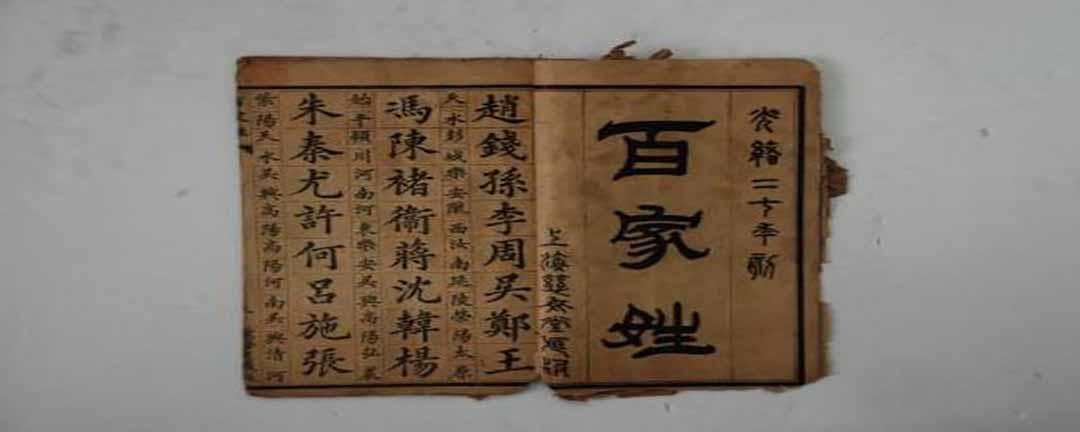 光緒二十年
百家姓
上海
趙錢孫李周吳鄭王
天水彭城樂安隴西汝南延陵滎陽太原
馮陳褚衞蔣沈韓楊
始平穎川河南河東樂安吳興高陽弘農
朱秦尤許何呂施張
紫陽天水吳興高陽高陽河南吳興清河